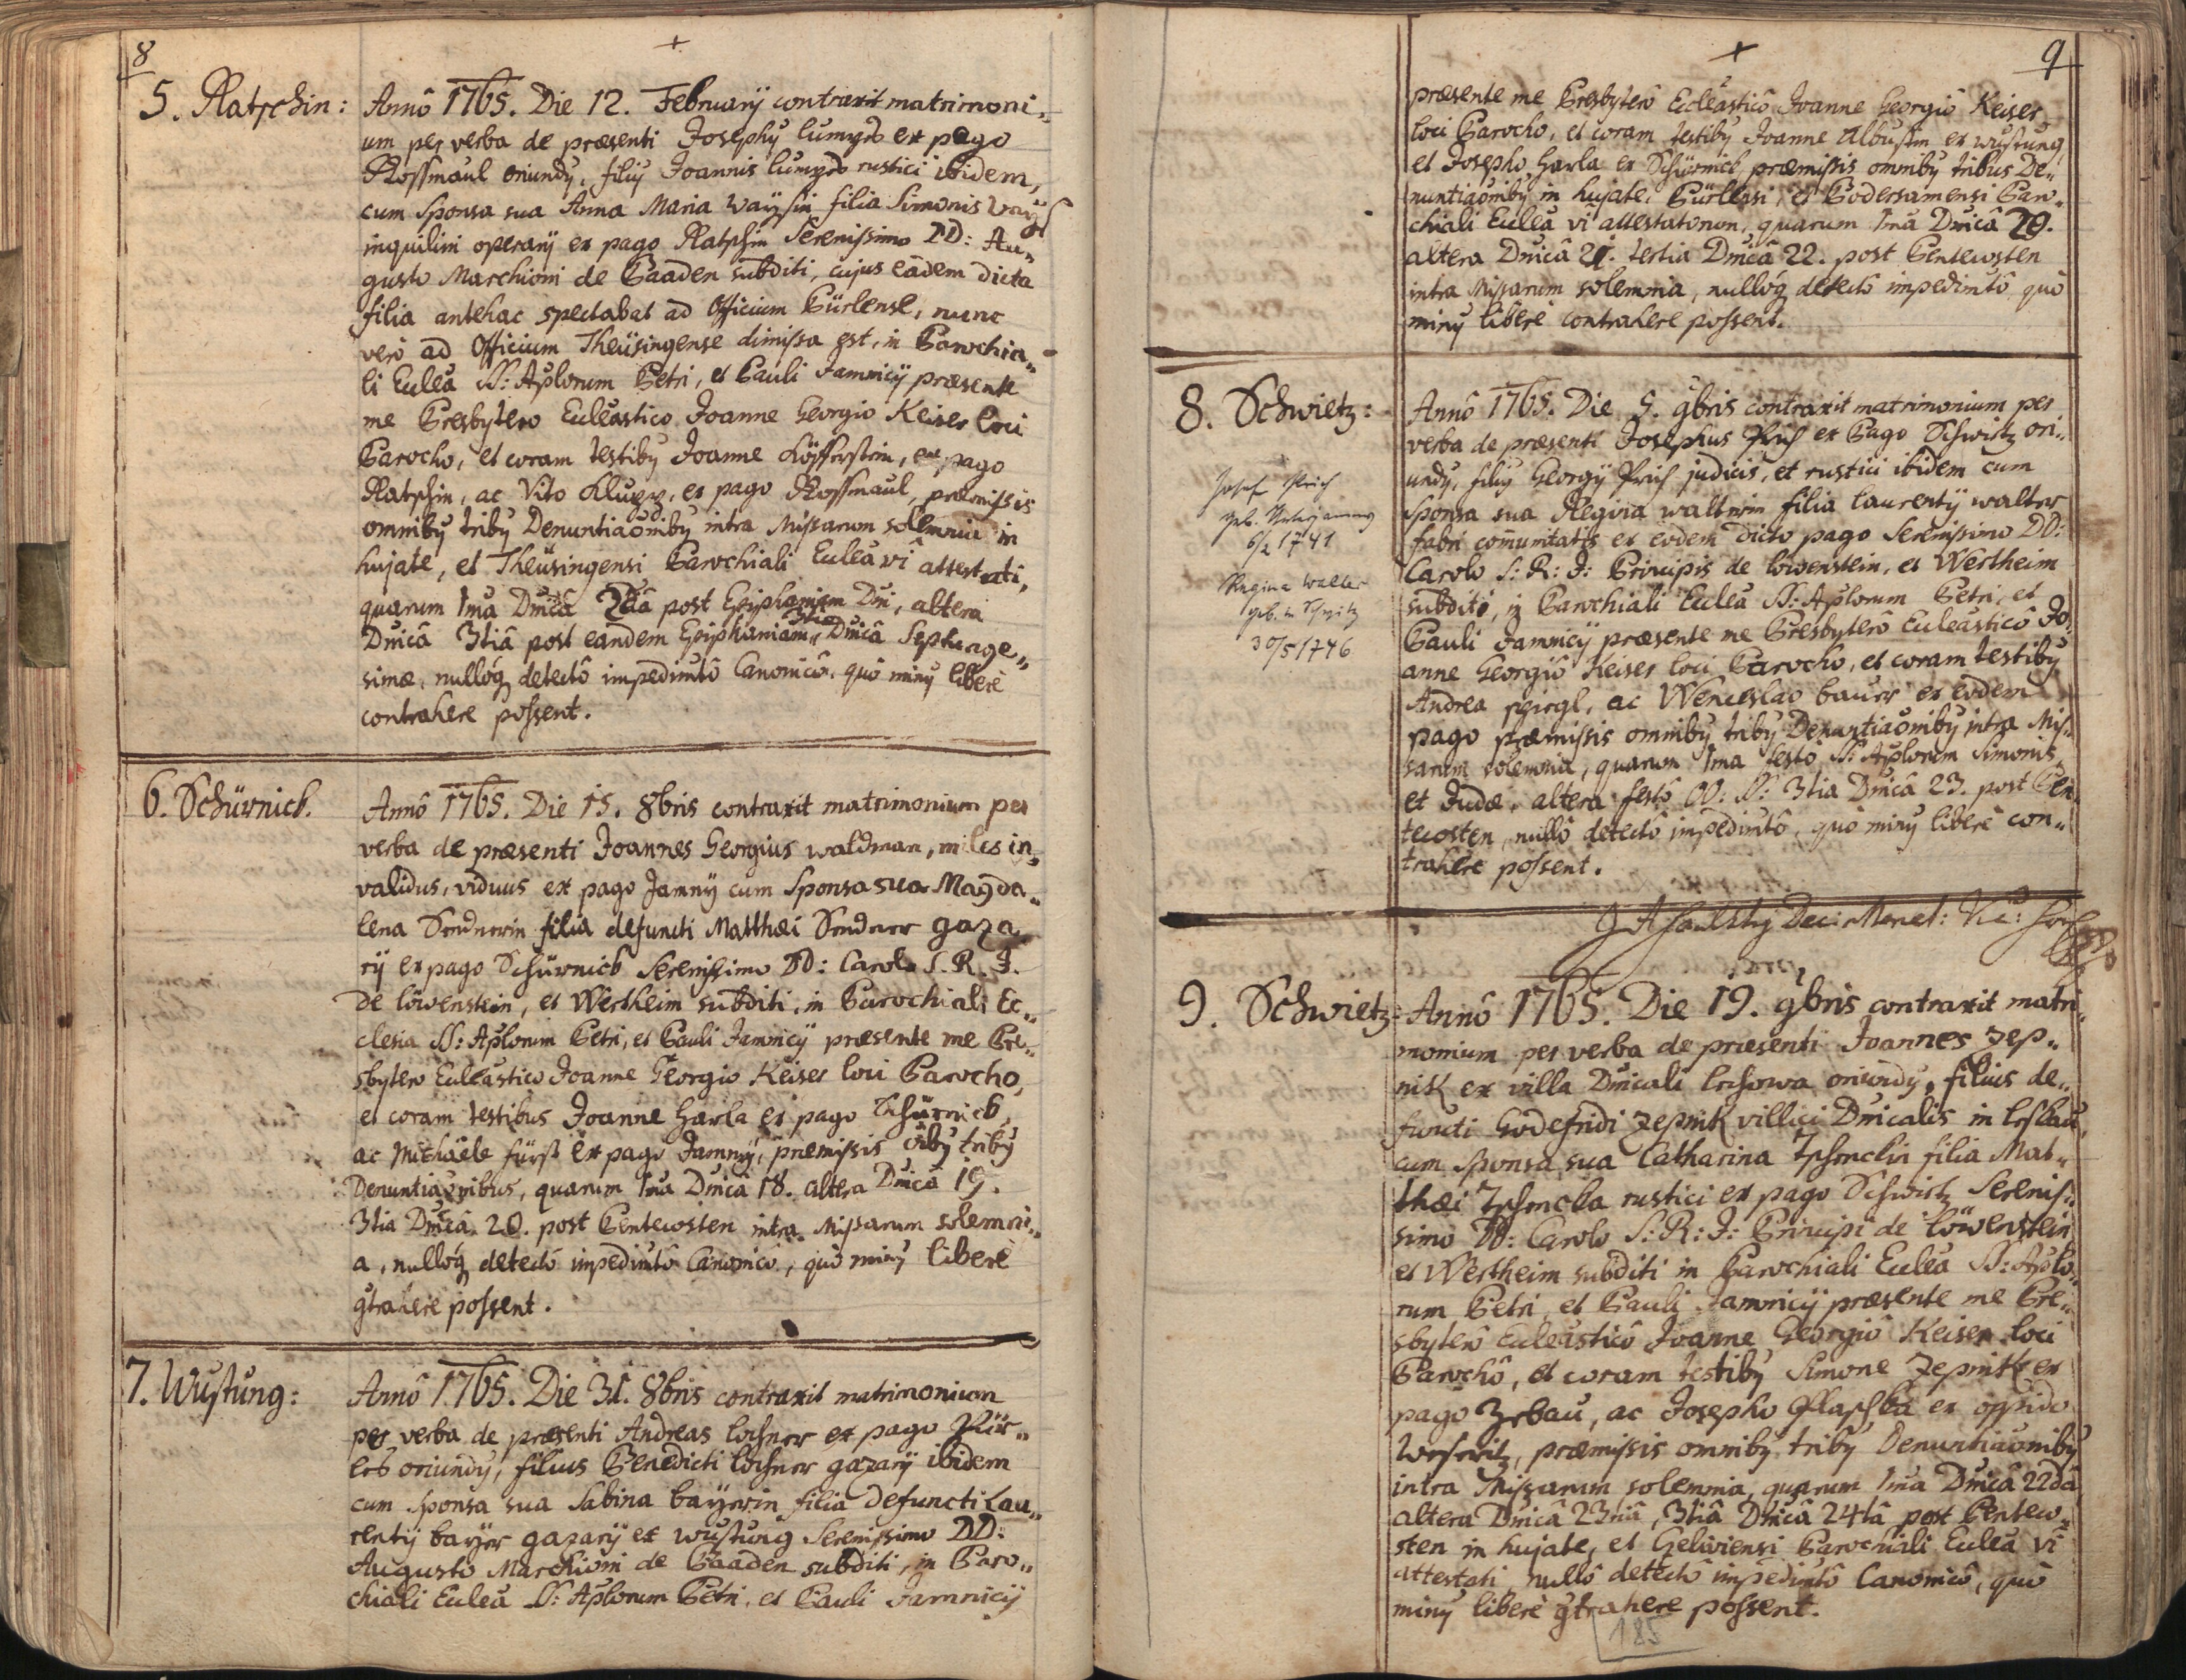 8
5. Ratschin:
Annô 1765. Die 12. Februarÿ contraxit matrimoni„
um per verba de præsenti Josephy lumpp ex pago
Rossmaul oriundy, filiy Joannis lumpp rustici ibidem,
cum Sponsa sua Anna Maria Waÿsin filia Simonis Waÿs
inquilini operarÿ ex pago Ratschin Serenissimo DD: Au„
gusto Marchioni de Baaden subditi, cujus eadem dicta
filia antehac spectabat ad Officium Gürlense, nunc
verò ad Officium Theüsingense dimissa est, in Parochia„
li Eccleâ SS: Aplorum Petri, et Pauli Jamnicÿ præsente
me Presbytero Eccleâstico Joanne Georgio Keiser loci
Parocho, et coram testiby Joanne, ex pago
Ratschin, ac Vito, ex pago Rossmaul, præmissis
omniby triby Denuntiaoniby intra Missarum solemnia in
hujate, et Theüsingensi Parochiali Eccleâ vi attestati,
quarum 1ma Dnicâ 2dâ post Epiphaniam Dni, altera
Dnicâ 3tiâ post eandem Epiphaniam, 3tia Dnicâ Septuage„
simæ, nullóq detectô impedimtô Canonicô, quò miny liberè
contrahere possent.
6. Schürnick.
Annô 1765. Die 15. 8bris contraxit matrimonium per
verba de præsenti Joannes Georgius waldman, miles in„
validus, viduus ex pago Jamnÿ cum Sponsa sua Magda„
lena Sendnerin filia defuncti Matthæi Sendner gaza„
rÿ ex pago Schürnick Serenissimo DD: Carolo S. R. I.
de löwenstein, et Wertheim subditi, in Parochiali Ec„
clesia SS: Aplorum Petri, et Pauli Jamnicÿ præsente me Pre„
sbytero Eccleâstico Joanne Georgio Keiser loci Parocho,
et coram testibus Joanne Harla ex pago Schürnick,
ac Michaële fürst ex pago Jamnÿ, præmissis oiby triby
Denuntiaonibus, quarum 1ma Dnicâ 18. altera Dnicâ 19.
3tia Dnicâ 20. post Pentecosten intra Missarum solemni„
a, nullóq detectô impedimtô Canonicô, quò miny liberè
gtrahere possent.
7. Wustung:
Annô 1765. Die 31. 8bris contraxit matrimonium
per verba de præsenti Andreas lochner ex pago Pür„
les oriundy, filius Benedicti lochner gazarÿ ibidem
cum Sponsa sua Sabina baÿerin filia defuncti Lau„
rentÿ baÿer gazarÿ ex wustung Serenissimo DD:
Augusto Marchioni de Baaden subditi, in Paro„
chiali Eccleâ SS: Aplorum Petri, et Pauli Jamnicÿ
9
præsente me Presbyterô Eccleâsticô Joanne Georgiô Keiser
loci Parocho, et coram testiby Joanne ex wustung,
et Josepho Harla ex Schürnick, præmissis omniby tribus De„
nuntiaoniby in hujate, Pürlesi, et Podersamensi Paro„
chiali Eccleâ vi attestatorum, quarum 1ma Dnicâ 20.
altera Dnicâ 21. tertia Dnicâ 22. post Pentecosten
intra Missarum solemnia, nullóq detectô impedimtô quò
miny liberè contrahere possent.
8. Schwietz:
Annô 1765. Die 5. 9bris contraxit matrimonium per
verba de præsenti Josephus ex Pago Schwitz ori„
undy, filiy Georgÿ judicis, et rustici ibidem cum
Sponsa sua Regina walterin filia laurentÿ walter
fabri comunitatis ex eodem dicto pago Serenissimo DD:
Carolo S: R: I: Principis de löwenstein, et Wertheim
subditi, in Parochiali Eccleâ SS: Aplorum Petri, et
Pauli Jamnicÿ præsente me Presbyterô Eccleâsticô Jo„
anne Georgiô Keiser loci Parocho, et coram testiby
Andrea spiegl, ac Wenceslao bauer ex eodem
pago præmissis omniby triby Denuntiaoniby intra Mis„
sarum solemnia, quarum 1ma festo SS: Aplorum Simonis
et Judæ, altera festô OO: SS: 3tia Dnicâ 23. post Pen„
tecosten, nullô detectô impedimtô, quò miny liberè con„
trahere possent.
Josef
geb.
6/2 1741
Regina Walter
geb. in
30/5 1746
9. Schwietz:
Annô 1765. Die 19. 9bris contraxit matri„
monium per verba de præsenti Joannes zep„
nik ex villa Dnicali oriundy, filius de„
functi Godefridi zepnik villici Dnicalis in
cum Sponsa sua Catharina filia Mat„
thæi rustici ex pago Schwitz Serenis„
simo DD: Carolo S: R: I: Principi de löwenstein
et Wertheim subditi in Parochiali Eccleâ SS: Aplo„
rum Petri, et Pauli Jamnicÿ præsente me Pre„
sbyterô Eccleâsticô Joanne Georgiô Keiser loci
Parochô, et coram testiby Simone zepnik ex
pago, ac Josepho ex oppido
, præmissis omniby triby Denuntiaoniby
intra Missarum solemnia, quarum 1ma Dnicâ 22dâ
altera Dnicâ 23tiâ, 3tiâ Dnicâ 24tâ post Penteco„
sten in hujate, et Parochiali Eccleâ vi
attestati nullô detectô impedimtô Canonicô, quò
miny liberè gtrahere possent.
185